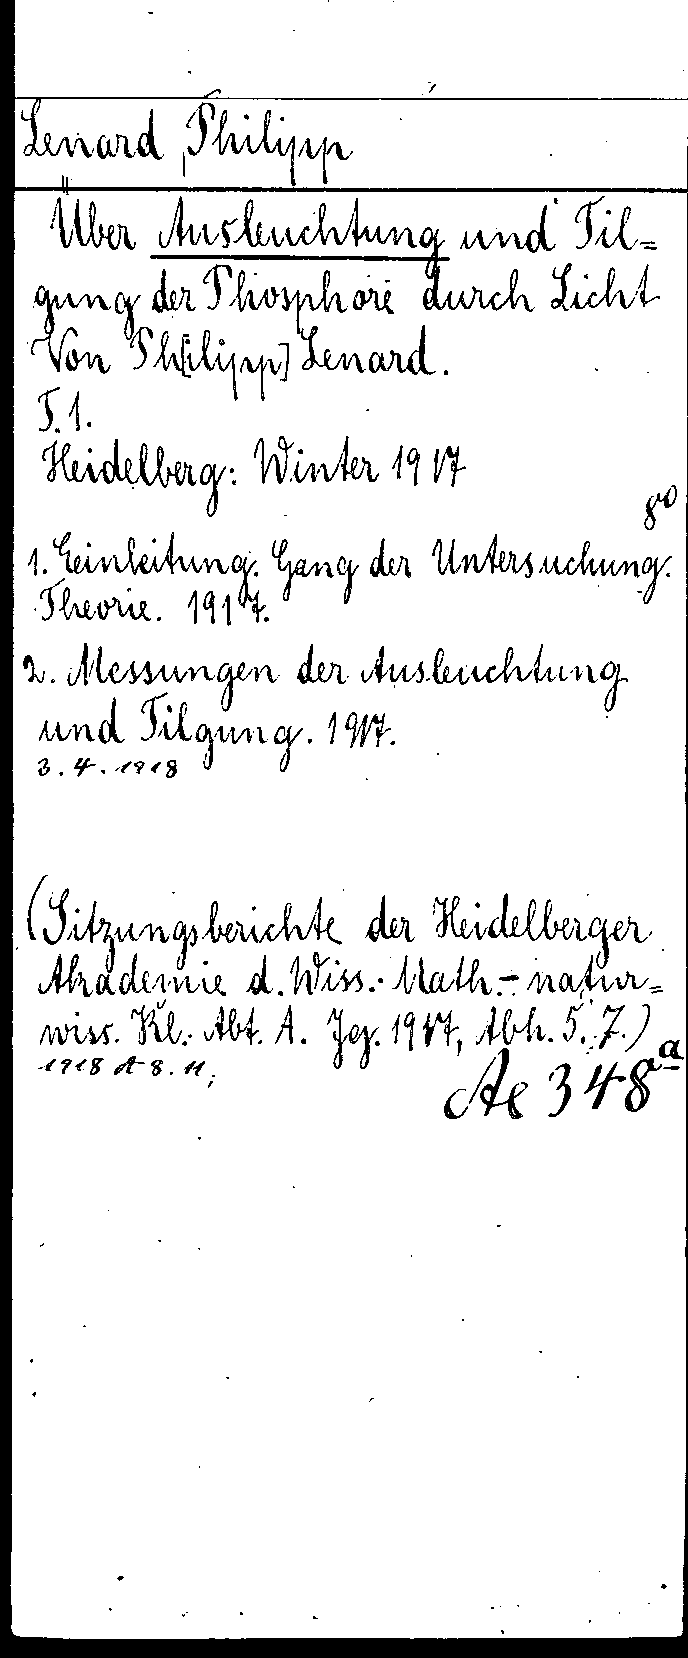 Lenard, Philipp
Über Ausleuchtung und Til=
gung der Phosphore durch Licht
Von Ph[ilipp] Lenard.
T. 1.
Heidelberg: Winter 1917
8°
1. Einleitung. Gang der Untersuchung.
Theorie. 1917.
2. Messungen der Ausleuchtung
und Tilgung. 1917.
3. 4. 1918
(Sitzungsberichte der Heidelberger
Akademie d. Wiss. Math.-natur=
wiss. Kl. Abt. A. Jg. 1917, Abh. 5. 7.)
1918 A 8. 11;
Ae 348aa